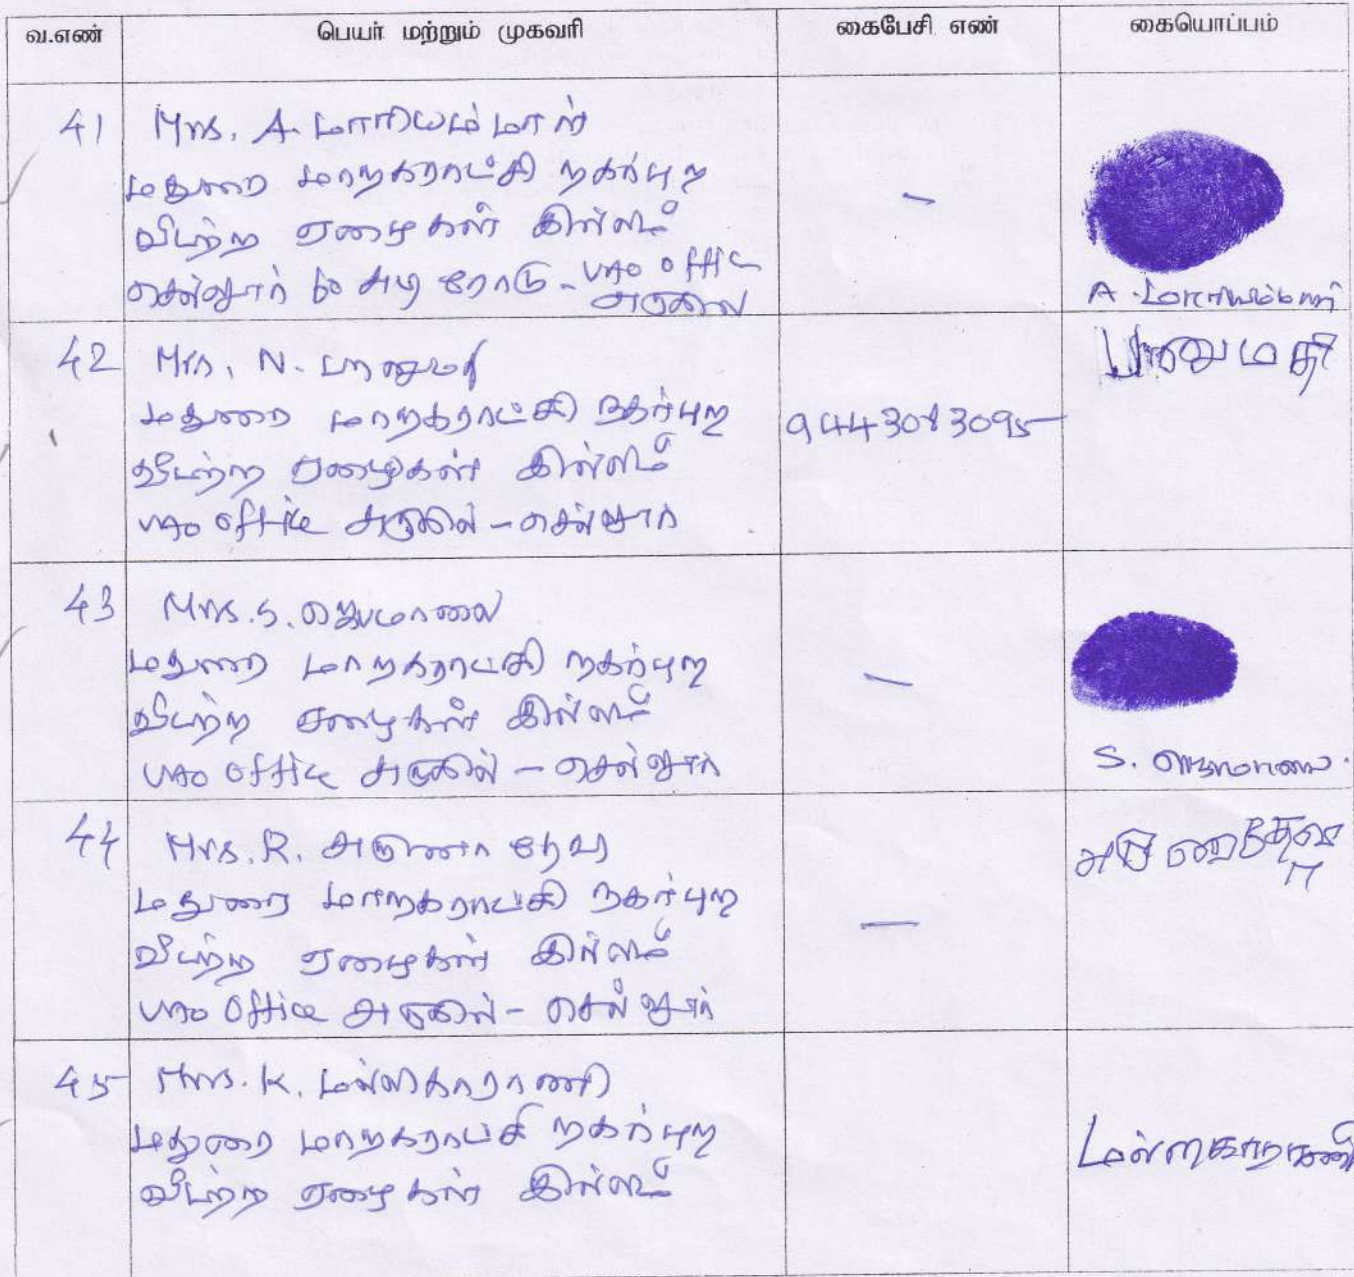 வ.எண் பெயர் மற்றும் முகவரி கைபேசி எண் கையொப்பம்
41 Mrs. A. மாரியம்மாள்
மதுரை மாநகராட்சி நகர்புற
வீடற்ற ஏழைகள் இல்லம் –
செல்லூர் 60 அடி ரோடு - VAO Office
அருகில்
A. மாரியம்மாள்
42 Mrs. N. பானுமதி
பானுமதி
மதுரை மாநகராட்சி நகர்புற
வீடற்ற ஏழைகள் இல்லம்
VAO Office அருகில் – செல்லூர்
43 Mrs. S. ஜெபமாலை
மதுரை மாநகராட்சி நகர்புற –
வீடற்ற ஏழைகள் இல்லம்
VAO Office அருகில் – செல்லூர்
S.
44 Mrs. R. அருணா தேவி
மதுரை மாநகராட்சி நகர்புற –
வீடற்ற ஏழைகள் இல்லம்
VAO Office அருகில் – செல்லூர்
45 Mrs. K. மல்லிகாராணி
மதுரை மாநகராட்சி நகர்புற மல்லிகாராணி
வீடற்ற ஏழைகள் இல்லம்